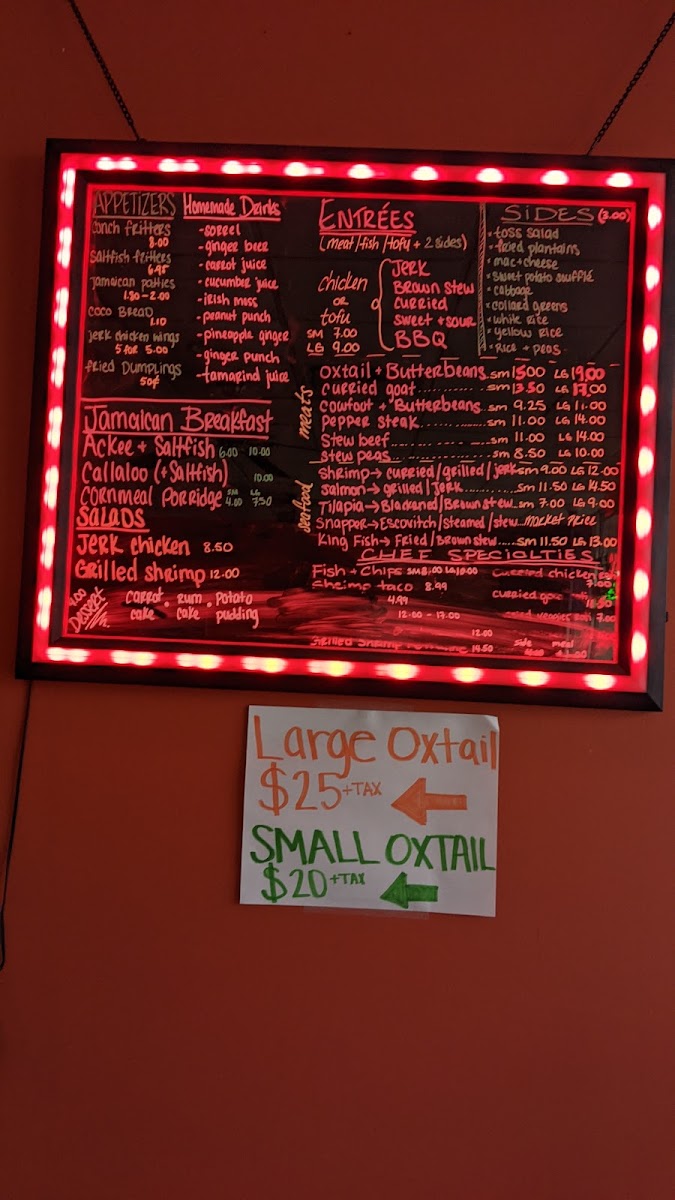 APPETIZERS
Conch fritters
8.00
Saltfish fritters
6.95
Jamaican patties
1.80-2.00
Coco Bread
1.10
Jerk chicken wings
5 for 5.00
Fried Dumplings
50¢
Homemade Drinks
-sorrel
-ginger beer
-carrot juice
-cucumber juice
-irish moss
-peanut punch
-pineapple ginger
-ginger punch
-tamarind juice
Jamaican Breakfast
Ackee + Saltfish 6.00 10.00
Callaloo (+Saltfish) 10.00
Cornmeal Porridge SM 4.00 LG 7.50
SALADS
Jerk chicken 8.50
Grilled shrimp 12.00
4.00
Dessert
carrot cake . rum cake . Potato pudding
ENTRÉES
(meat/fish/tofu + 2 sides)
chicken
or
tofu
SM 7.00
LG 9.00
JERK
Brown stew
curried
sweet + sour
BBQ
SIDES (3.00)
-toss salad
-fried plantains
-mac+cheese
-sweet potato soufflé
-cabbage
-collard greens
-white rice
-yellow rice
-Rice + peas
meats
oxtail + Butterbeans..sm 15.00 LG 19.00
curried goat..........sm 13.50 LG 17.00
cowfoot + Butterbeans...sm 9.25 LG 11.00
pepper steak..........sm 11.00 LG 14.00
Stew beef..........sm 11.00 LG 14.00
stew peas..........sm 8.50 LG 10.00
seafood
shrimp→curried/grilled/jerk sm 9.00 LG 12.00
salmon→grilled/Jerk..........sm 11.50 LG 14.50
Tilapia→Blackened/Brown stew..sm 7.00 LG 9.00
Snapper→Escovitch/steamed/stew..market price
King Fish→Fried/Brown stew....sm 11.50 LG 13.00
CHEF SPECIALTIES
Fish + Chips sm 8.00 LG 10.00
shrimp taco 8.99
4.99
12.00 - 17.00
12.00
Grilled Shrimp 14.50
curried chicken
7.00
curried goat
7.00
side meal
Large Oxtail
$25+TAX
SMALL OXTAIL
$20+TAX